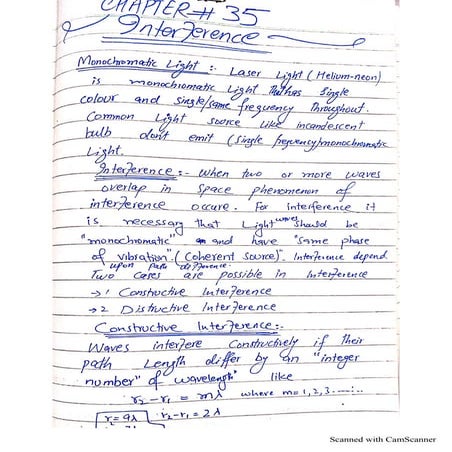 CHAPTER # 35
Interference
Monochromatic Light :- Laser Light (Helium-neon)
is monochromatic Light that has single
colour and single/same frequency throughout.
Common Light source like incandescent
bulb don't emit (single frequency) monochromatic
Light.
Interference :- When two or more waves
overlap in space phenomenon of
interference occure. For interference it
is necessary that Light waves should be
"monochromatic" and have "same phase
of vibration". (Coherent source)". Interference depend
upon path difference.
Two cases are possible in Interference
→ 1 Constructive Interference
→ 2 Distructive Interference
Constructive Interference :-
Waves interfere Constructively if their
path Length differ by an "integer
number" of wavelength" like
r2 - r1 = mλ where m = 1, 2, 3 ......
r2 - r1 = 2λ
Scanned with CamScanner